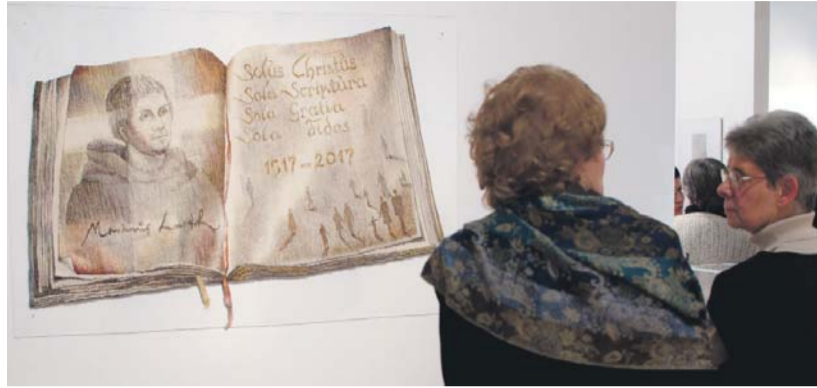 Solus Christus
Sola Scriptura
Sola Gratia
Sola
1517–2017
Martinus